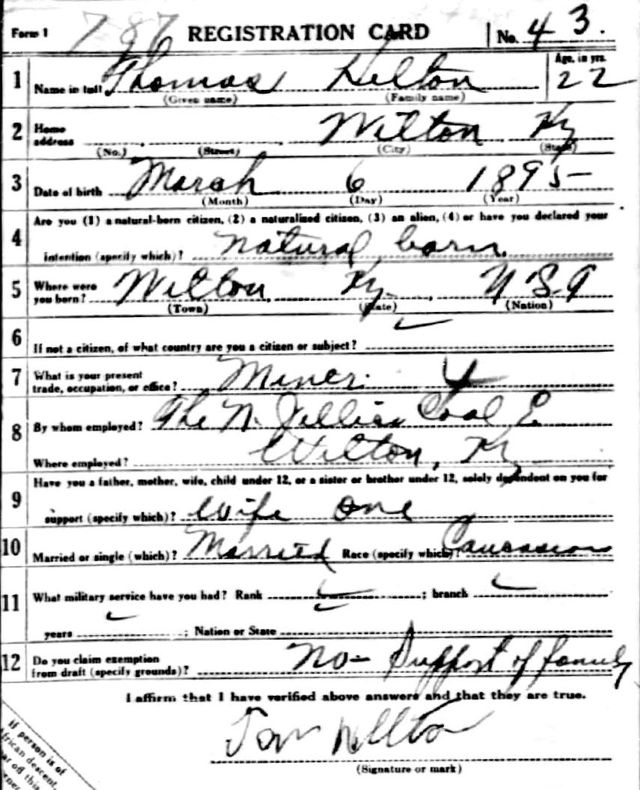 Form 1 787 REGISTRATION CARD No. 43.
1 Name in full Thomas Helton Age, in yrs. 22
(Given name) (Family name)
2 Home address Wilton Ky
(No.) (Street) (City) (State)
3 Date of birth March 6 1895
(Month) (Day) (Year)
4 Are you (1) a natural-born citizen, (2) a naturalized citizen, (3) an alien, (4) or have you declared your
intention (specify which)? natural born
5 Where were you born? Wilton Ky, U.S.A
(Town) (State) (Nation)
6 If not a citizen, of what country are you a citizen or subject?
7 What is your present trade, occupation, or office? Miner 4
8 By whom employed? The N. Jellico Coal C
Where employed? Wilton, Ky
9 Have you a father, mother, wife, child under 12, or a sister or brother under 12, solely dependent on you for
support (specify which)? Wife one
10 Married or single (which)? Married Race (specify which)? Caucasian
11 What military service have you had? Rank ; branch
years ; Nation or State
12 Do you claim exemption from draft (specify grounds)? No - Support of family
I affirm that I have verified above answers and that they are true.
Tom Hellton
(Signature or mark)
If person is of
African descent,
tear off this
corner